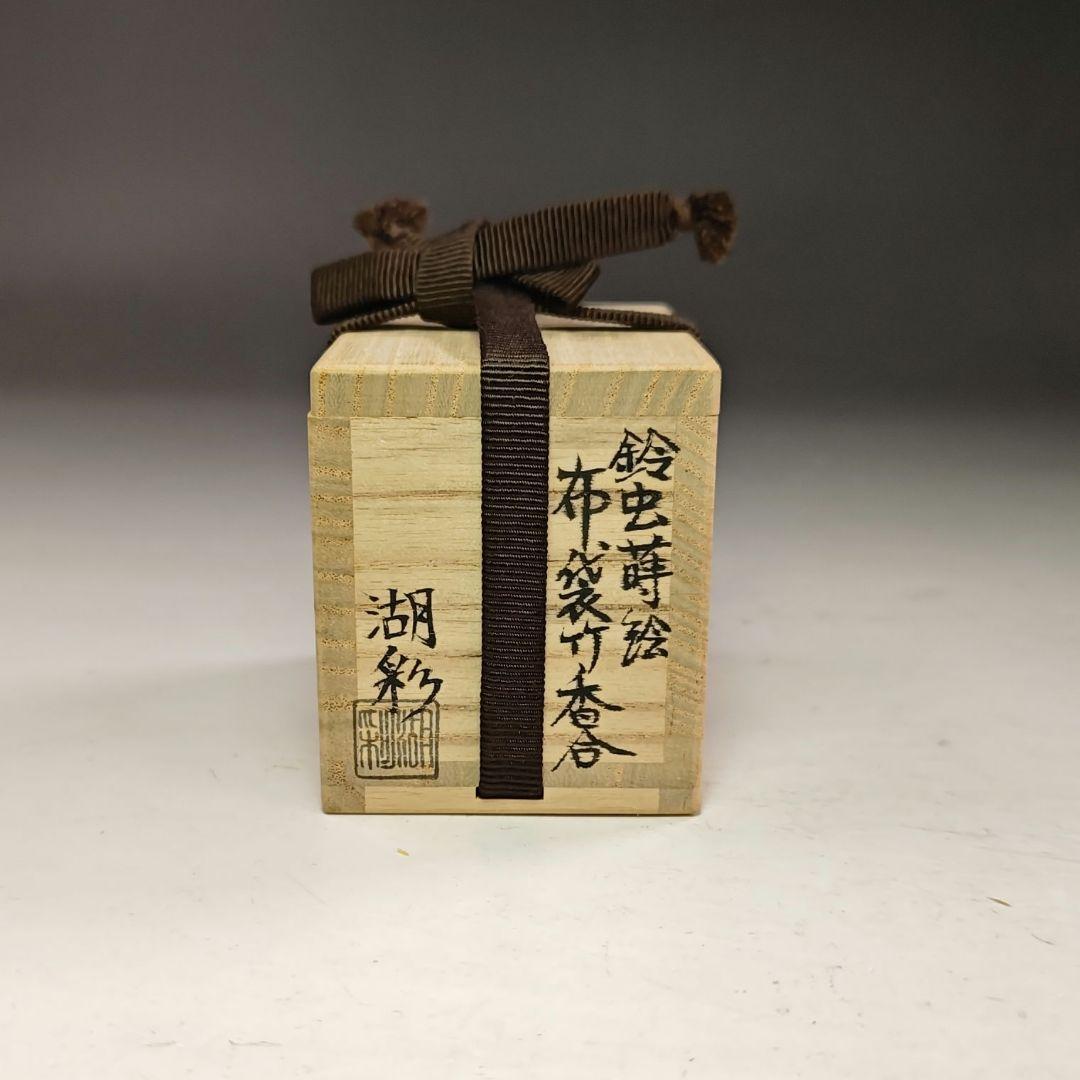 鈴虫蒔絵
布袋竹香合
湖彩
湖彩